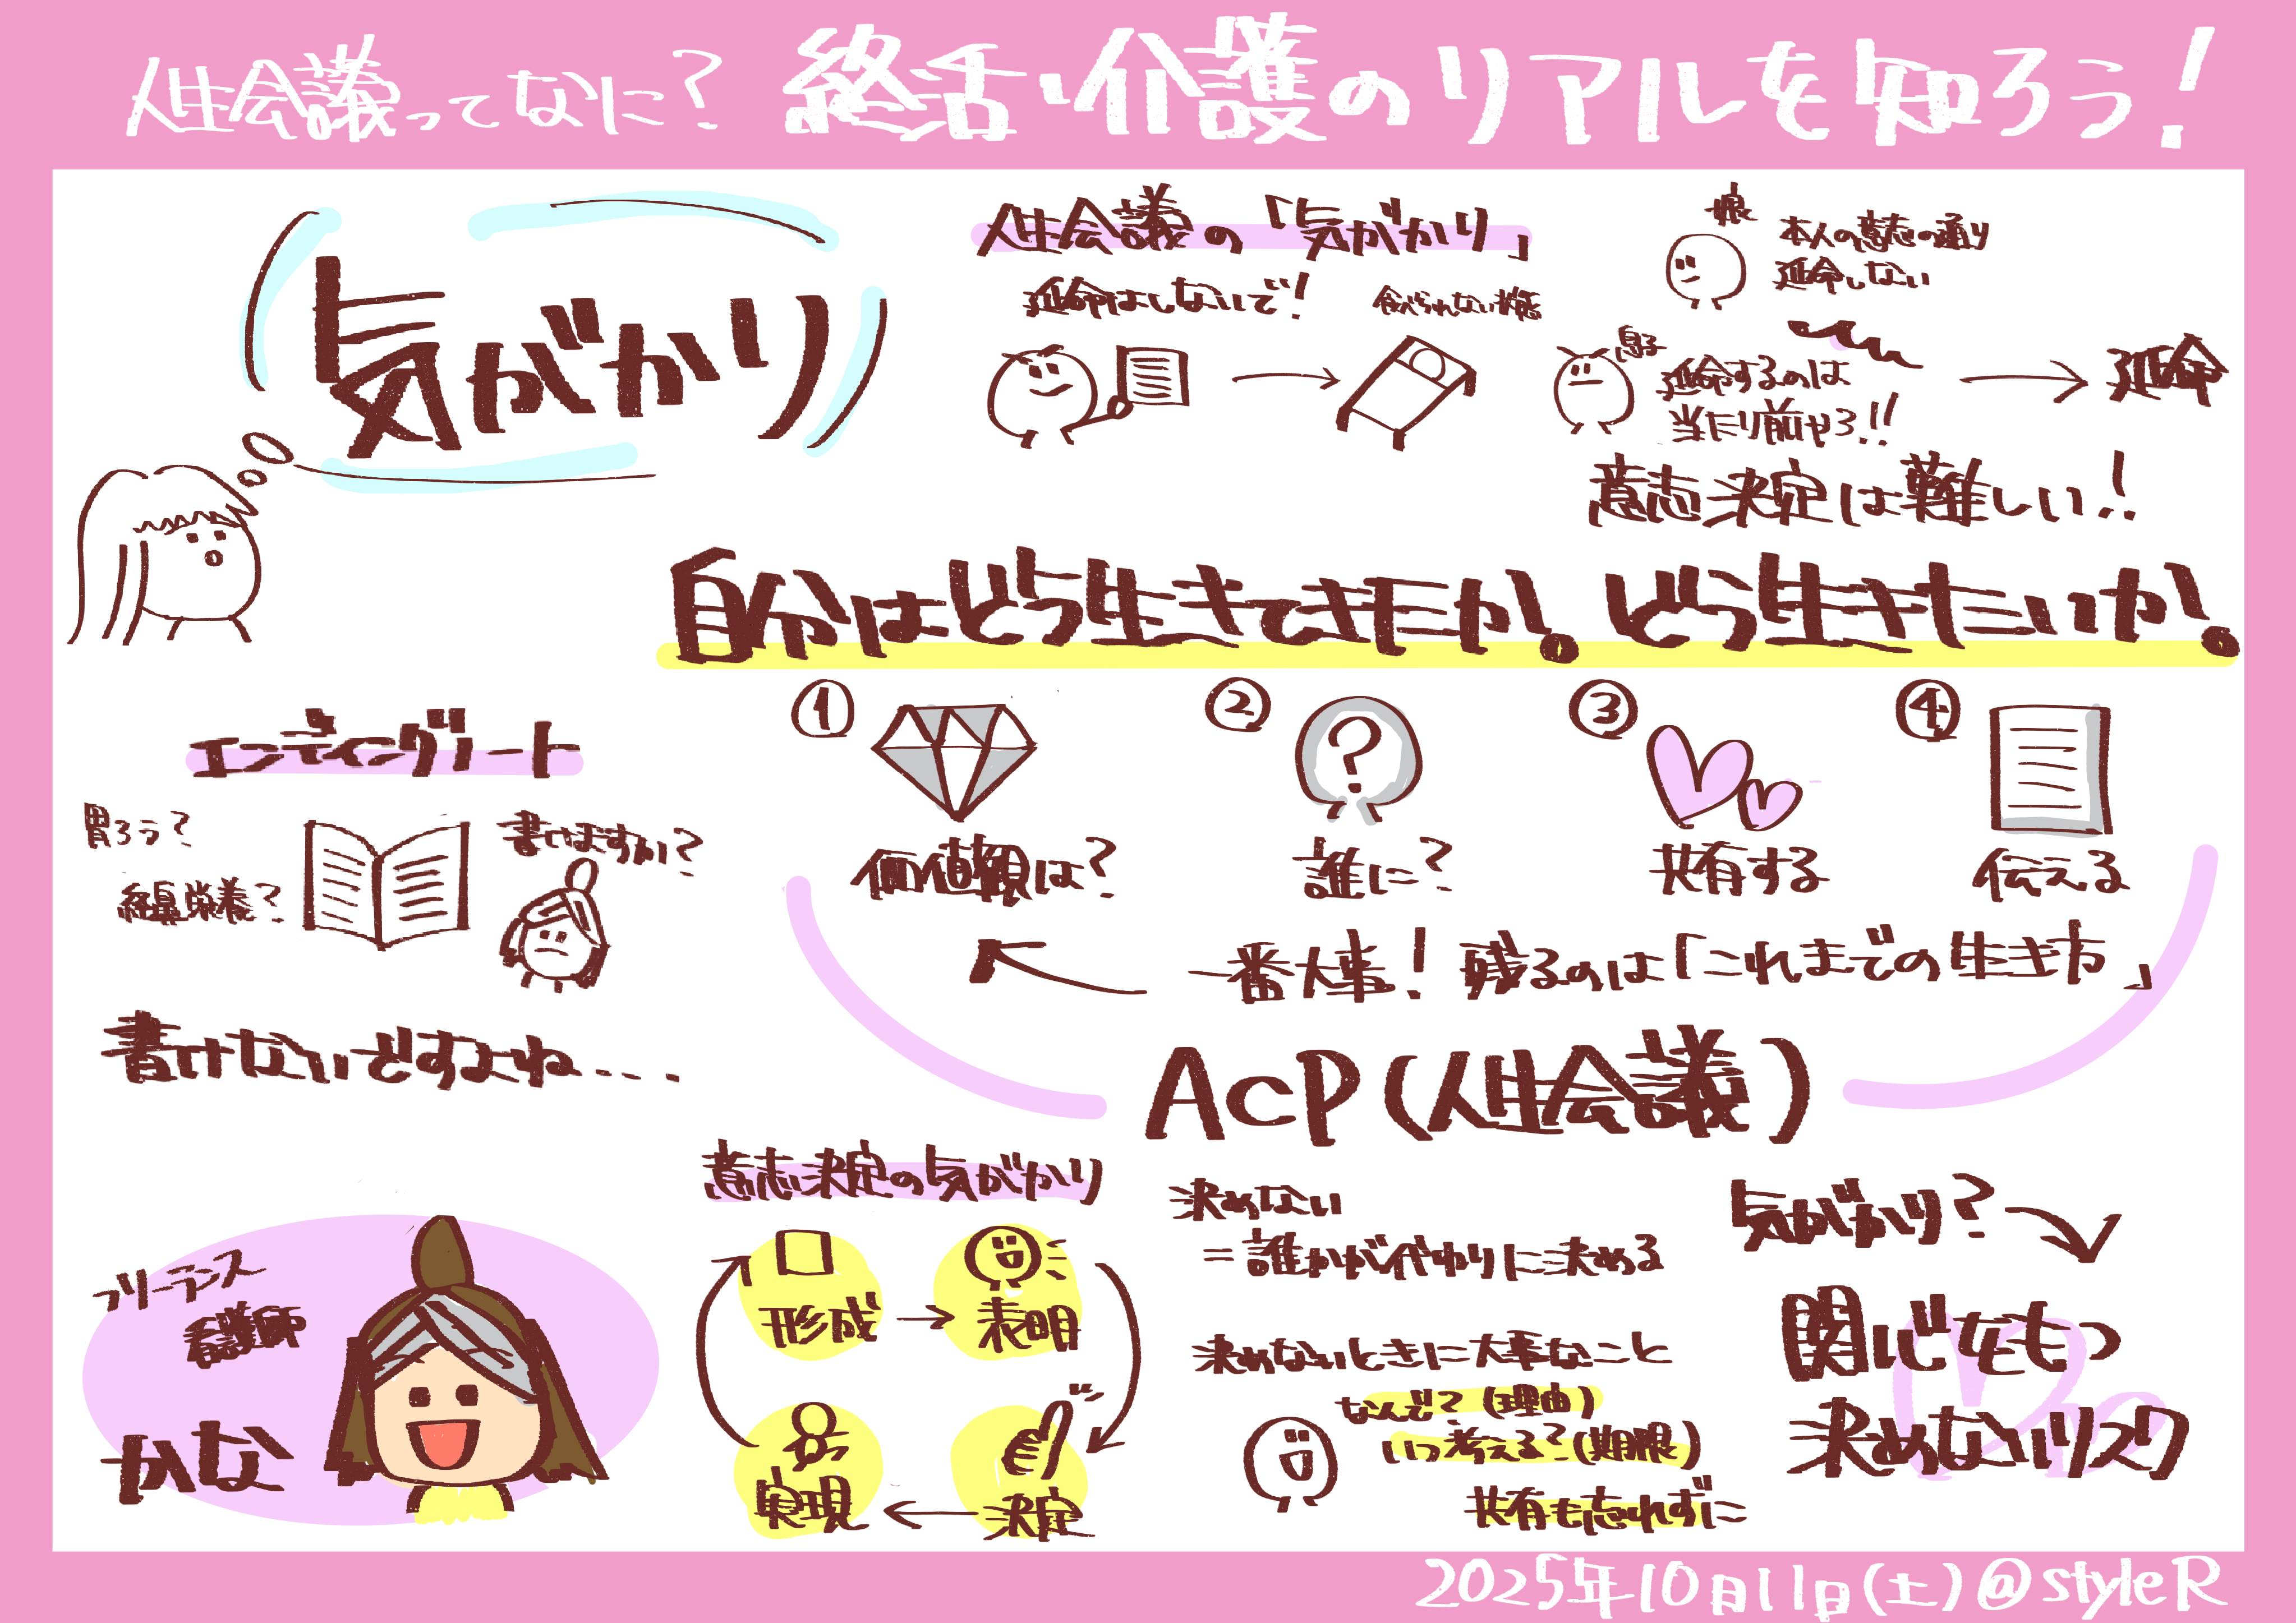 人生会議ってなに? 終活・介護のリアルを知ろう!
気がかり
人生会議の「気がかり」
延命はしないで!
食べられない状態
娘
本人の意志の通り
延命しない
息子
延命するのは
当たり前やろ!!
延命
意志決定は難しい!!
自分はどう生きてきたか。どう生きたいか。
エンディングノート
胃ろう?
経鼻栄養?
書けますか?
書けないですよね...
① 価値観は?
② 誰に?
③ 共有する
④ 伝える
一番大事! 残るのは「これまでの生き方」
ACP(人生会議)
フリーランス
看護師
かな
意志決定の気がかり
形成
表明
決定
実現
決めない
=誰かが代わりに決める
決めないときに大事なこと
なんで?(理由)
いつ考える?(期限)
共有も忘れずに
気がかり?
関心をもつ
決めないリスク
2025年10月11日(土)@styleR